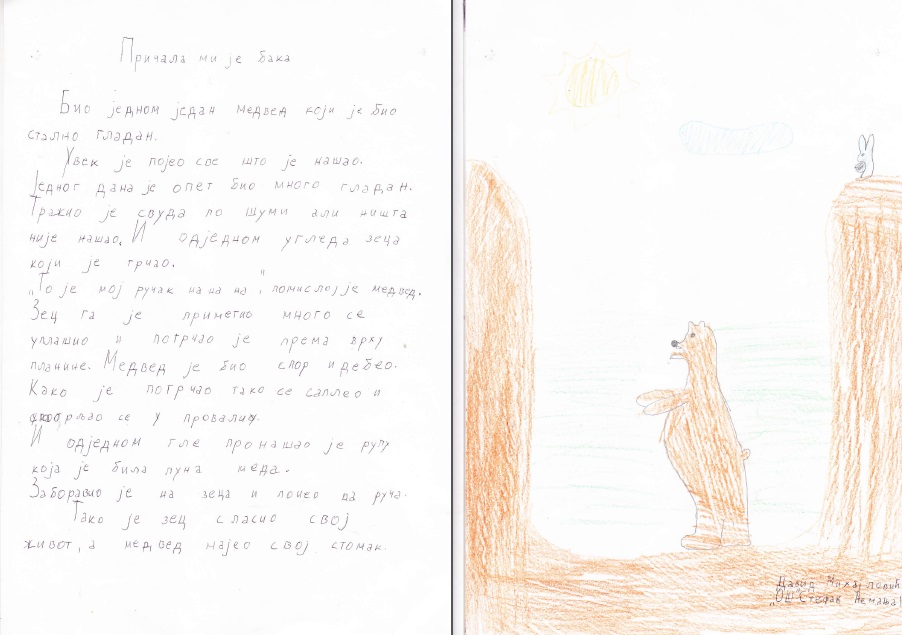 Причала ми је бака
Био једном један медвед који је био
стално гладан.
Увек је појео све што је нашао.
Једног дана је опет био много гладан.
Тражио је свуда по шуми али ништа
није нашао. И одједном угледа зеца
који је трчао.
„То је мој ручак на на на", помислој је медвед.
Зец га је приметио много се
уплашио и потрчао је према врху
планине. Медвед је био спор и дебео.
Како је потрчао тако се саплео и
се у провалију.
И одједном гле пронашао је рупу
која је била пуна меда.
Заборавио је на зеца и почео да руча.
Тако је зец спасио свој
живот, а медвед најео свој стомак.
Давид
„ОШ" Стефан Немања"